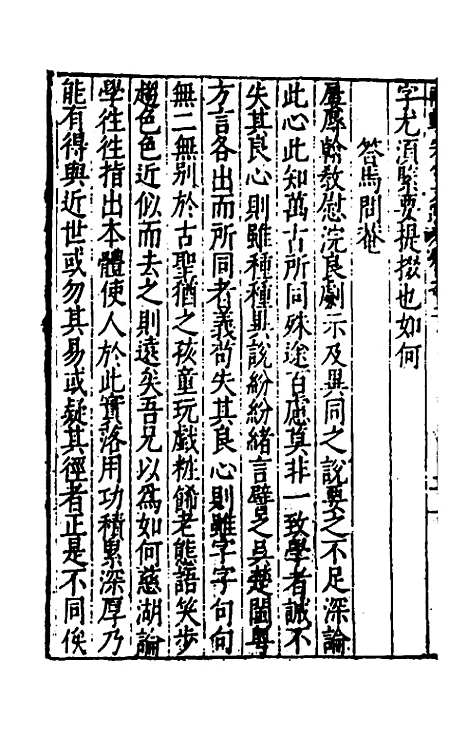 字尤湏緊要提掇也如何
答馬問菴
屢辱翰教慰浣良劇示及異同之說要之不足深論
此心此知萬古所同殊途百慮莫非一致學者誠不
失其良心則雖種種異說紛紛緒言譬之吳楚閩粤
方言各出而所同者義苟失其良心則雖字字句句
無二無别於古聖猶之孩童玩戲粧餙老態語笑步
趨色色近似而去之則遠矣吾兄以爲如何慈湖論
學徃徃指出本體使人於此實落用功積累深厚乃
能有得與近世或勿其易或疑其徑者正是不同俟